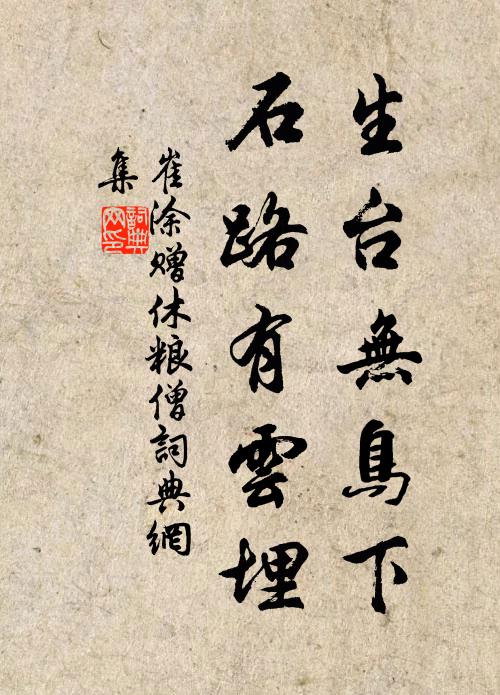 生台無鳥下
石路有雲埋
崔涂贈休粮僧詞典網
集
詞典
网印